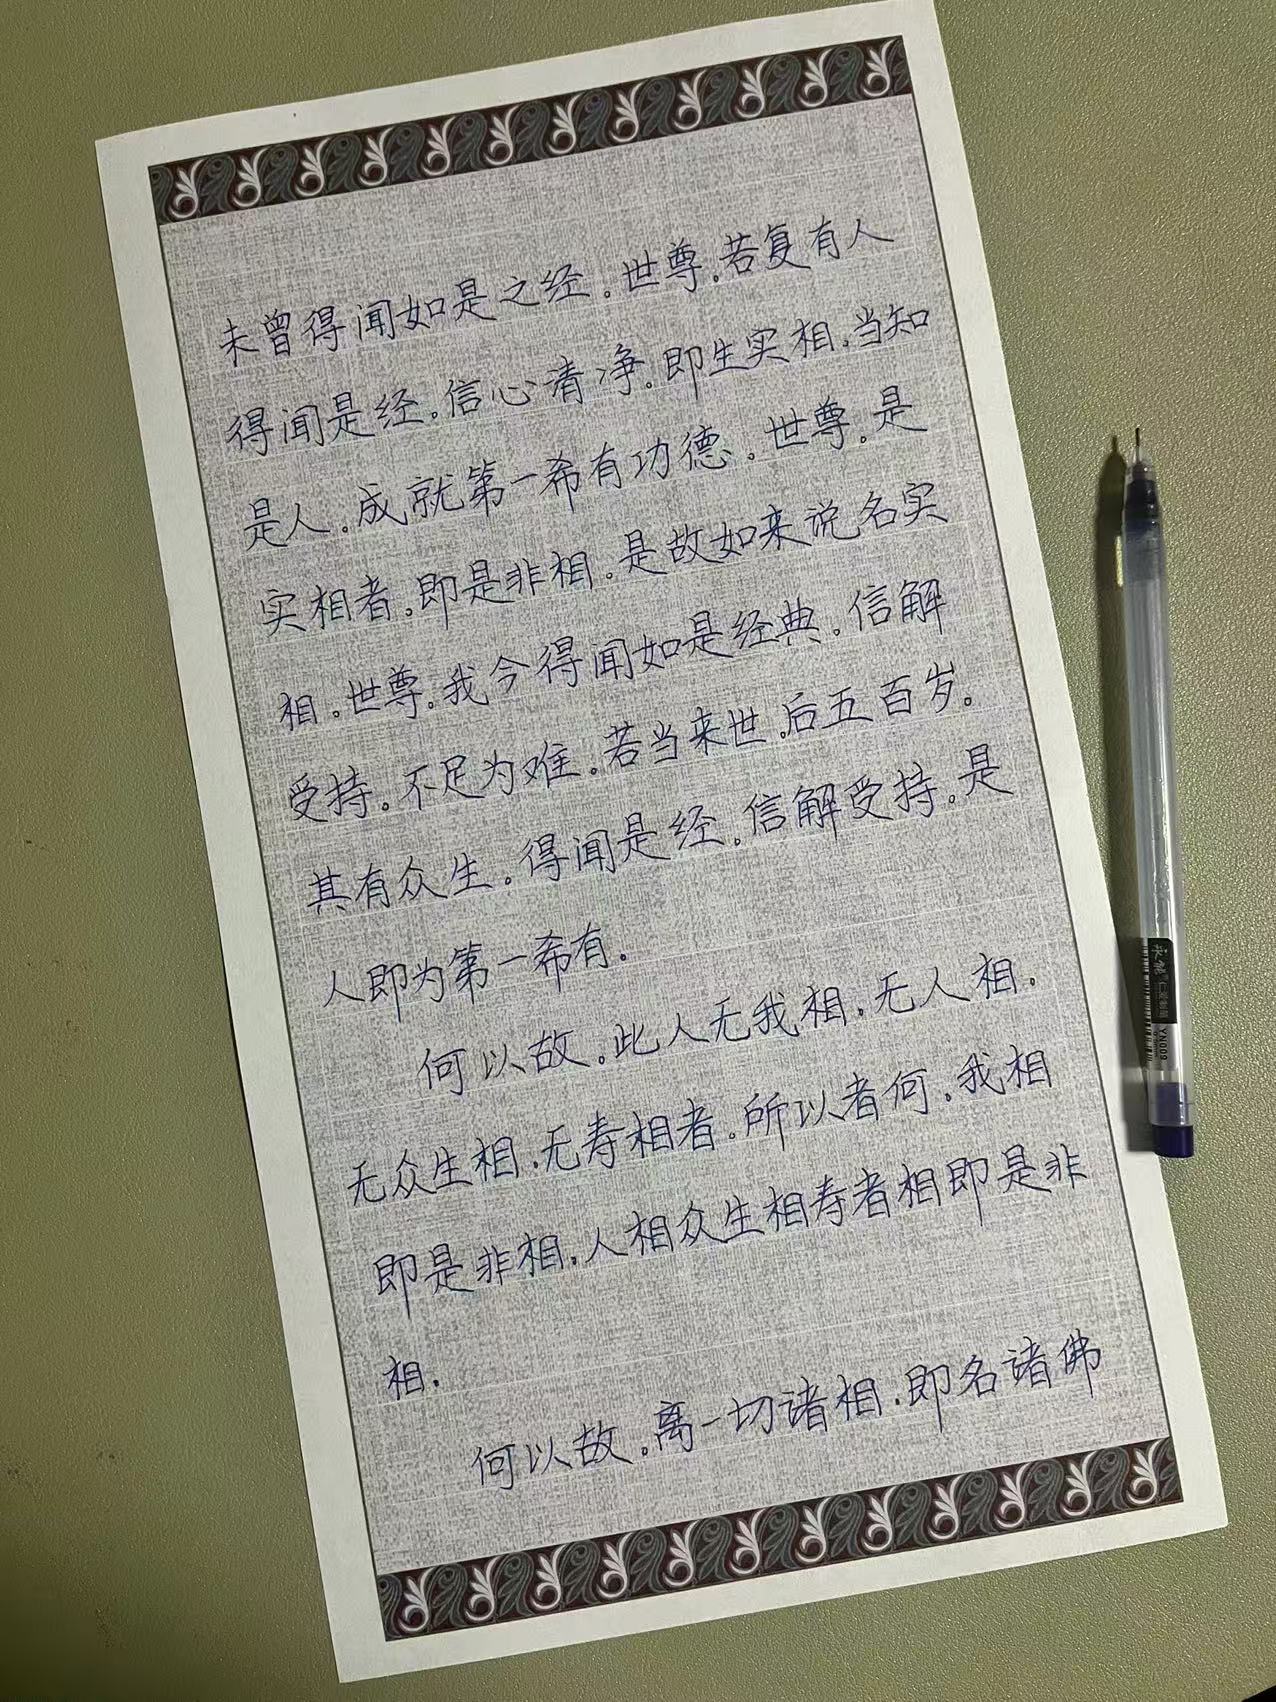 未曾得闻如是之经。世尊。若复有人
得闻是经。信心清净。即生实相。当知
是人。成就第一希有功德。世尊。是
实相者。即是非相。是故如来说名实
相。世尊。我今得闻如是经典。信解
受持。不足为难。若当来世。后五百岁。
其有众生。得闻是经。信解受持。是
人即为第一希有。
何以故。此人无我相。无人相。
无众生相。无寿相者。所以者何。我相
即是非相。人相众生相寿者相即是非
相。
何以故。离一切诸相。即名诸佛
YN009